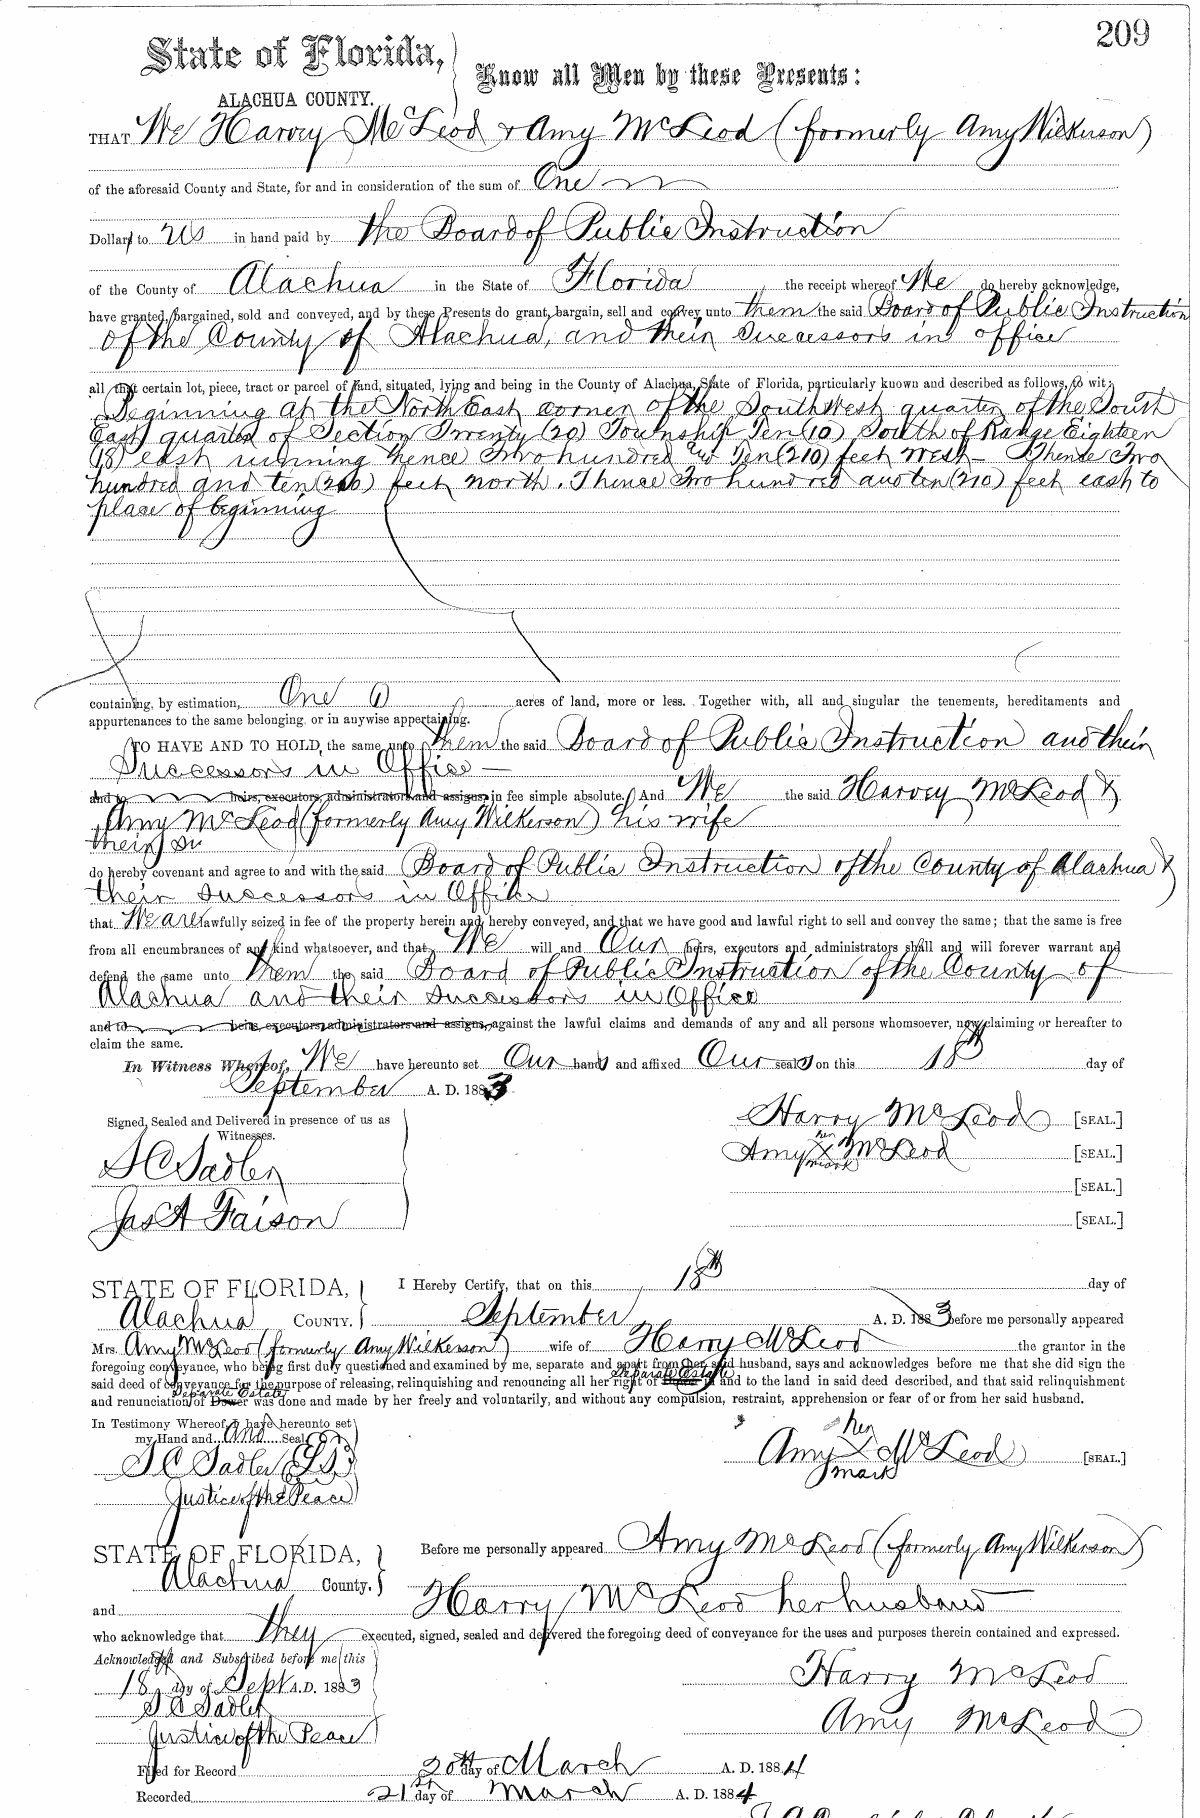 209
State of Florida,
ALACHUA COUNTY.
Know all Men by these Presents:
THAT We Harvey McLeod & Amy McLeod (formerly Amy Wilkerson)
of the aforesaid County and State, for and in consideration of the sum of One
Dollar to us in hand paid by the Board of Public Instruction
of the County of Alachua in the State of Florida the receipt whereof We do hereby acknowledge,
have granted, bargained, sold and conveyed, and by these Presents do grant, bargain, sell and convey unto them the said Board of Public Instruction
of the County of Alachua, and their Successors in office
all that certain lot, piece, tract or parcel of land, situated, lying and being in the County of Alachua, State of Florida, particularly known and described as follows, to wit:
Beginning at the North East corner of the South West quarter of the South
East quarter of Section Twenty (20) Township Ten (10) South of Range Eighteen
(18) east running thence Two hundred and Ten (210) feet west – Thence Two
hundred and ten (210) feet north. Thence Two hundred and ten (210) feet east to
place of beginning
containing, by estimation, One (1) acres of land, more or less. Together with, all and singular the tenements, hereditaments and
appurtenances to the same belonging or in anywise appertaining.
TO HAVE AND TO HOLD, the same unto them the said Board of Public Instruction and their
Successors in Office –
and to heirs, executors, administrators and assigns, in fee simple absolute. And We the said Harvey McLeod &
Amy McLeod (formerly Amy Wilkerson) his wife
their su
do hereby covenant and agree to and with the said Board of Public Instruction of the County of Alachua &
their successors in Office
that We are lawfully seized in fee of the property herein and hereby conveyed, and that we have good and lawful right to sell and convey the same; that the same is free
from all encumbrances of any kind whatsoever, and that We will and Our heirs, executors and administrators shall and will forever warrant and
defend the same unto them the said Board of Public Instruction of the County of
Alachua and their successors in Office
and to heirs, executors, administrators and assigns, against the lawful claims and demands of any and all persons whomsoever, now claiming or hereafter to
claim the same.
In Witness Whereof, We have hereunto set Our hands and affixed Our seals on this 18th day of
September A. D. 1883
Signed, Sealed and Delivered in presence of us as
Witnesses.
S C Sadler
Jas A Faison
Harry McLeod [SEAL.]
her
Amy X McLeod [SEAL.]
mark
[SEAL.]
[SEAL.]
STATE OF FLORIDA,
Alachua COUNTY.
I Hereby Certify, that on this 18th day of
September A. D. 1883 before me personally appeared
Mrs. Amy McLeod (formerly Amy Wilkerson) wife of Harry McLeod the grantor in the
foregoing conveyance, who being first duly questioned and examined by me, separate and apart from her said husband, says and acknowledges before me that she did sign the
Separate Estate
said deed of conveyance for the purpose of releasing, relinquishing and renouncing all her right of Dower in and to the land in said deed described, and that said relinquishment
Separate Estate
and renunciation of Dower was done and made by her freely and voluntarily, and without any compulsion, restraint, apprehension or fear of or from her said husband.
In Testimony Whereof, I have hereunto set
my Hand and and Seal
S C Sadler
Justice of the Peace
her
Amy X McLeod [SEAL.]
mark
STATE OF FLORIDA,
Alachua County.
Before me personally appeared Amy McLeod (formerly Amy Wilkerson)
and Harry McLeod her husband
who acknowledge that they executed, signed, sealed and delivered the foregoing deed of conveyance for the uses and purposes therein contained and expressed.
Acknowledged and Subscribed before me this
18th day of Sept A.D. 1883
S C Sadler
Justice of the Peace
Harry McLeod
Amy McLeod
Filed for Record 20th day of March A. D. 1884
Recorded 21st day of March A. D. 1884